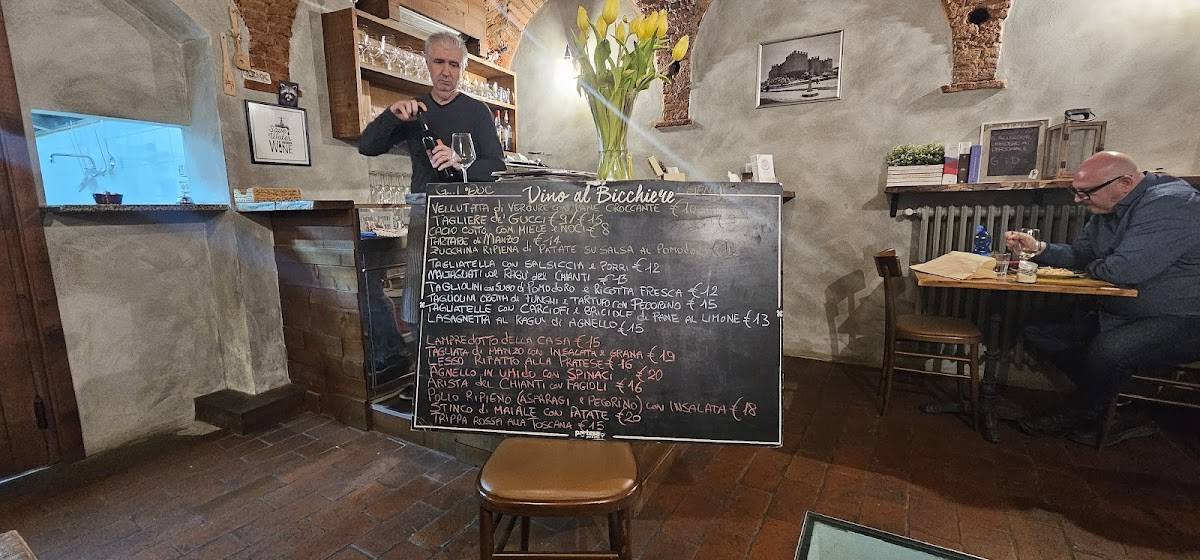 Save
Water
Drink
WINE
Vino al Bicchiere
VELLUTATA di VERDURE CROCCANTE €10
TAGLIERE de' GUCCI €9/€15
CACIO COTTO CON MIELE E NOCI €8
TARTARE di MANZO €14
ZUCCHINA RIPIENA di PATATE SU SALSA AL POMODORO €12
TAGLIATELLA CON SALSICCIA E PORRI €12
MALTAGLIATI col RAGU' del CHIANTI €13
TAGLIOLINI CON SUGO di POMODORO E RICOTTA FRESCA €12
TAGLIOLINI CREMA di FUNGHI E TARTUFO CON PECORINO €15
TAGLIATELLE CON CARCIOFI E BRICIOLE di PANE AL LIMONE €13
LASAGNETTA AL RAGU' di AGNELLO €15
LAMPREDOTTO DELLA CASA €15
TAGLIATA di MANZO CON INSALATA E GRANA €19
LESSO RIFATTO ALLA PRATESE €16
AGNELLO IN UMIDO CON SPINACI €20
ARISTA del CHIANTI CON FAGIOLI €16
POLLO RIPIENO (ASPARAGI E PECORINO) CON INSALATA €18
STINCO di MAIALE CON PATATE €20
TRIPPA ROSSA ALLA TOSCANA €15